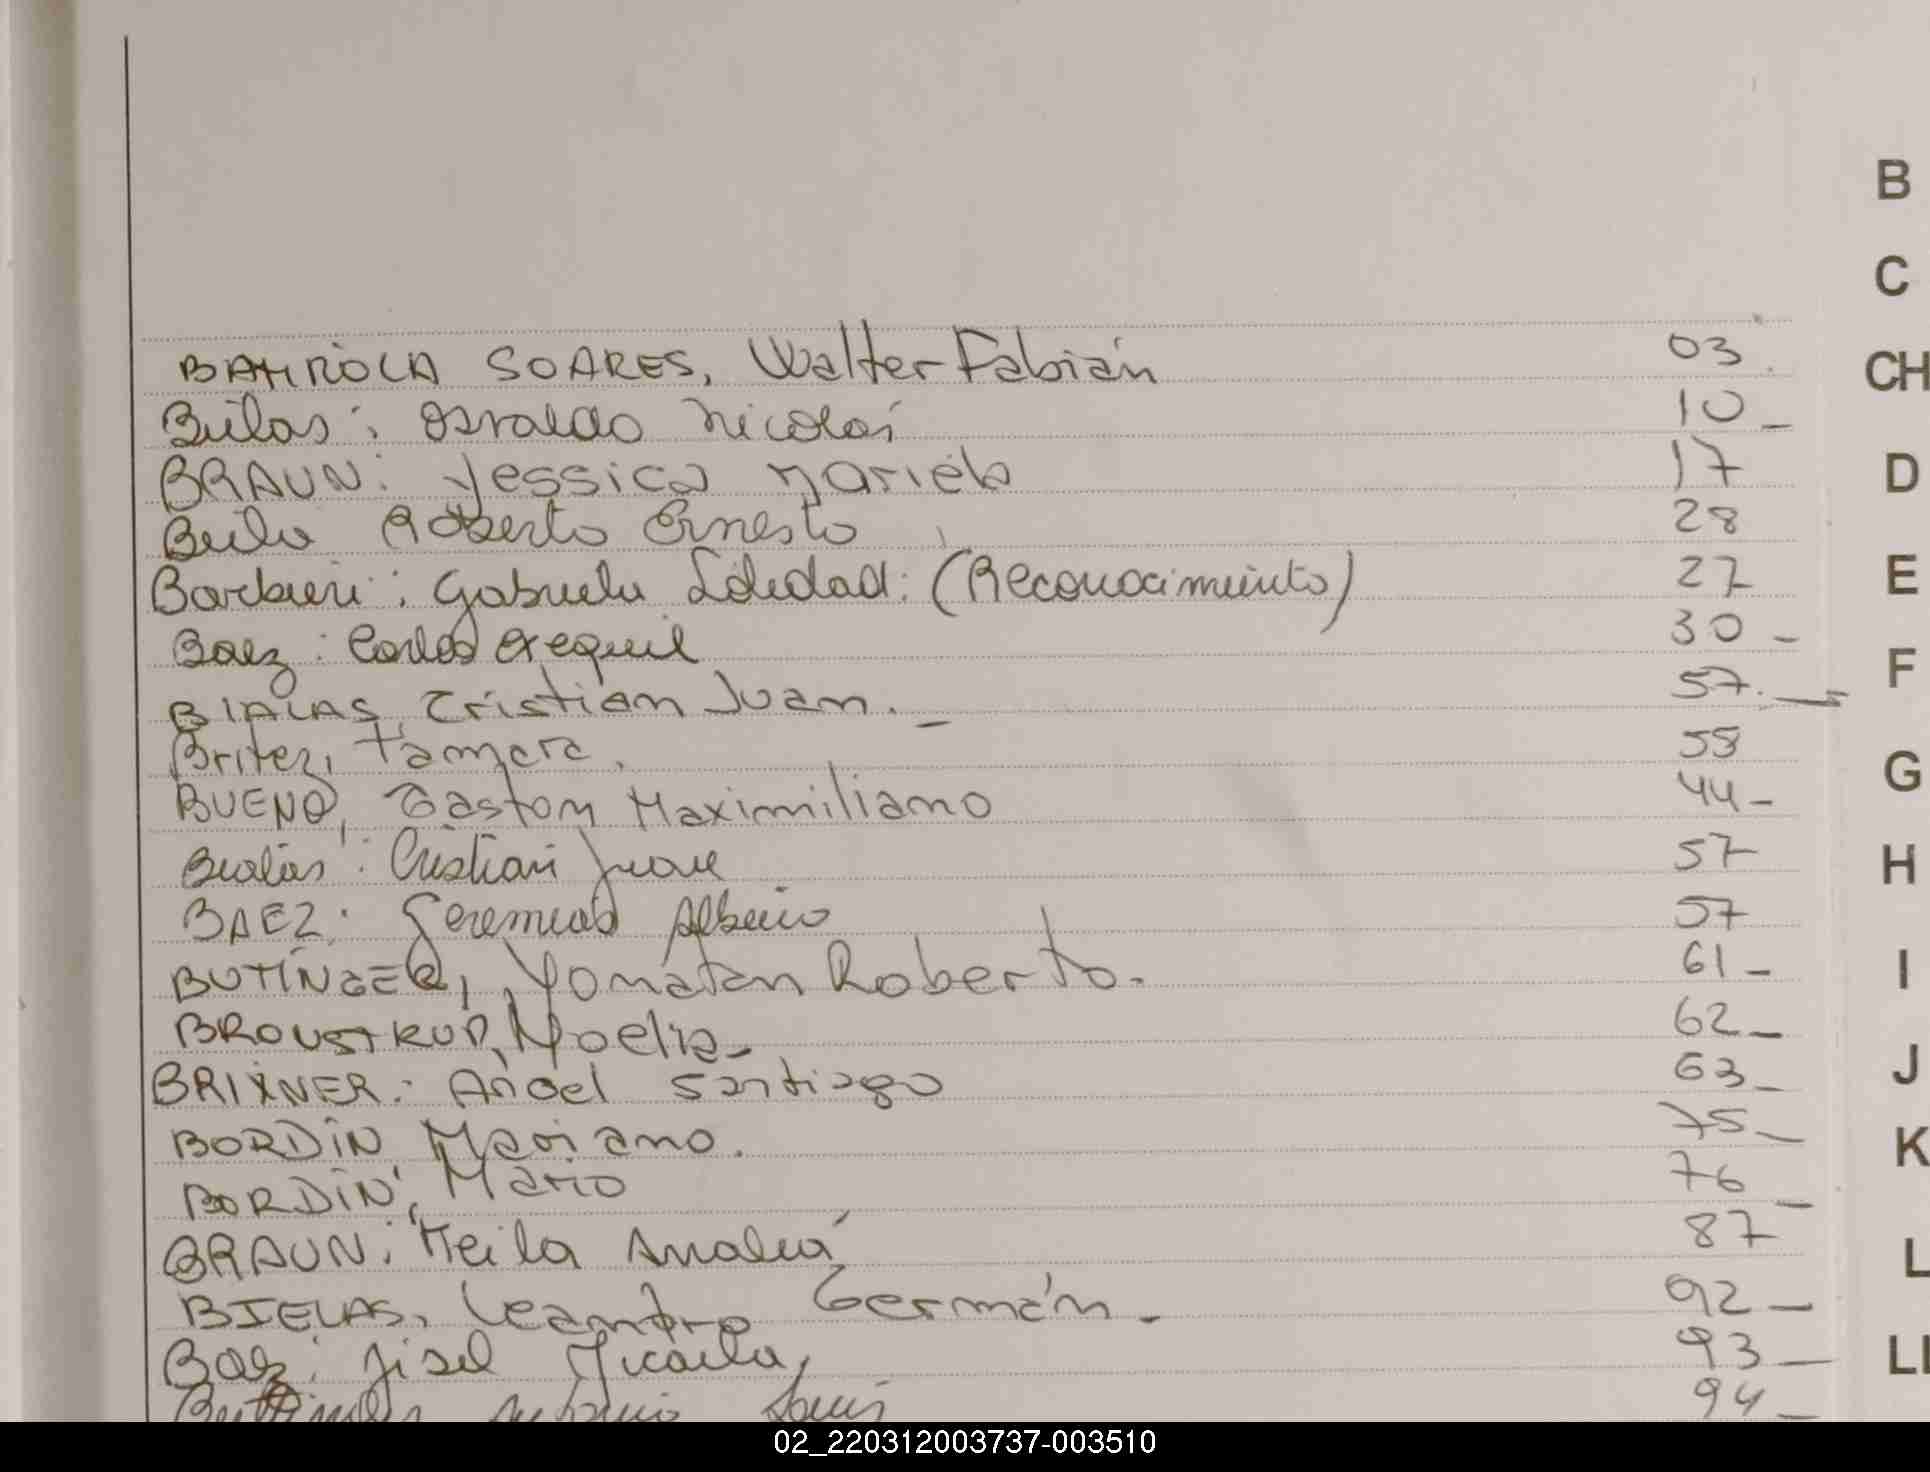 BAHROLA SOARES, Walter Fabián 03
B
C
CH
Bielas: Osvaldo Nicolás 10 _
BRAUN: Yessica Mariela 17
D
Beilo Roberto Ernesto 28
Barbieri: Gabriela Soledad: (Reconocimiento) 27
E
Baez: Carlos Exequiel 30 _
BIALAS, Cristian Juan. _ 57. _
F
Britez, Tamara. 58
BUENO, Gaston Maximiliano 44 _
G
Bialas: Cristian Juan 57
H
BAEZ: Geremias Albino 57
BUTINGER, Yonatan Roberto. 61 _
I
Noelia _ 62 _
BRIXNER: Angel Santiago 63 _
J
BORDIN Mariano. 75 _
K
BORDIN, Mario 76 _
BRAUN: Keila Analia 87
L
BIELAS, Leandro Germán. _ 92 _
Baez: Jisel Micaela, 93 _
LL
Antonio Luis 94 _
02_220312003737-003510